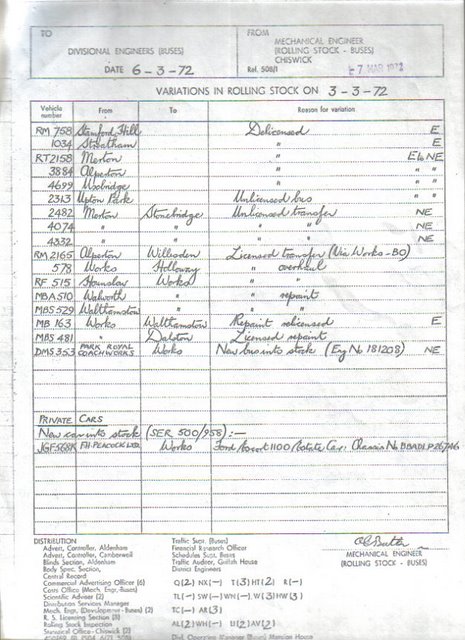 TO
FROM
DIVISIONAL ENGINEERS (BUSES)
MECHANICAL ENGINEER
(ROLLING STOCK - BUSES)
CHISWICK
DATE 6-3-72
Ref. 508/1
7 MAR 1972
VARIATIONS IN ROLLING STOCK ON 3-3-72
Vehicle number From To Reason for variation
RM 758 Stamford Hill Delicensed E
1034 Streatham " E
RT 2158 Merton " E to NE
3884 Alperton " " "
4699 Uxbridge " " "
2313 Upton Park Unlicensed bus " "
2482 Merton Stonebridge Unlicensed transfer NE
4074 " " " " NE
4332 " " " " NE
RM 2165 Alperton Willesden Licensed transfer (Via Works - BO)
578 Works Holloway " overhaul
RF 515 Hounslow Works " "
MBA 510 Walworth " " repaint
MBS 529 Walthamstow " " "
MB 163 Works Walthamstow Repaint relicensed E
MBS 481 " Dalston Licensed repaint
DMS 353 PARK ROYAL COACHWORKS Works New bus into stock (Eng No 181208) NE
PRIVATE CARS
New car into stock (SER 500/958):-
JGF 568K F.H. PEACOCK LTD. Works Ford Escort 1100 Estate Car: Chassis No
DISTRIBUTION
Advert. Controller, Aldenham
Advert. Controller, Camberwell
Blinds Section, Aldenham
Body Spec. Section,
Central Record
Commercial Advertising Officer (6)
Costs Office (Mech. Engr. Buses)
Scientific Adviser (2)
Distribution Services Manager
Mech. Engr. (Development - Buses) (2)
R. S. Licensing Section (3)
Rolling Stock Inspection
Statistical Office - Chiswick (2)
Traffic Supt. (Buses)
Financial Research Officer
Schedules Supt. Buses
Traffic Auditor, Griffith House
District Engineers
Q(2) NX(-) T(3) HT(2) R(-)
TL(-) SW(-) WN(-) W(3) HW(3)
TC(-) AR(3)
AL(2) WH(-) U(2) AV(2)
Divl. Operating Manager (Buses) Mansion House
MECHANICAL ENGINEER
(ROLLING STOCK - BUSES)